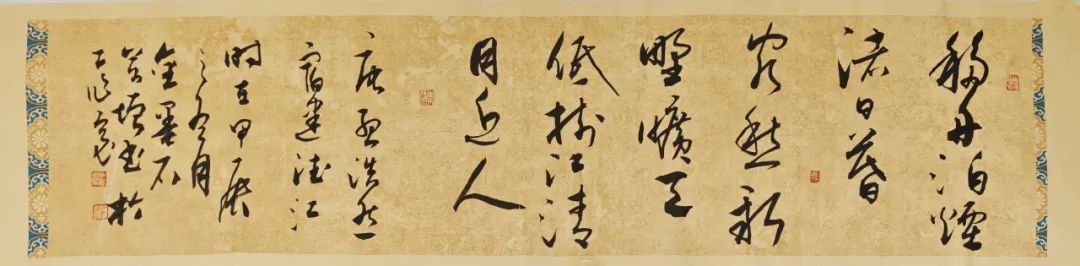 移舟泊煙
渚日暮
客愁新
野曠天
低樹江清
月近人
唐孟浩然
宿建德江
時在甲辰
之冬月
金墨石
書於